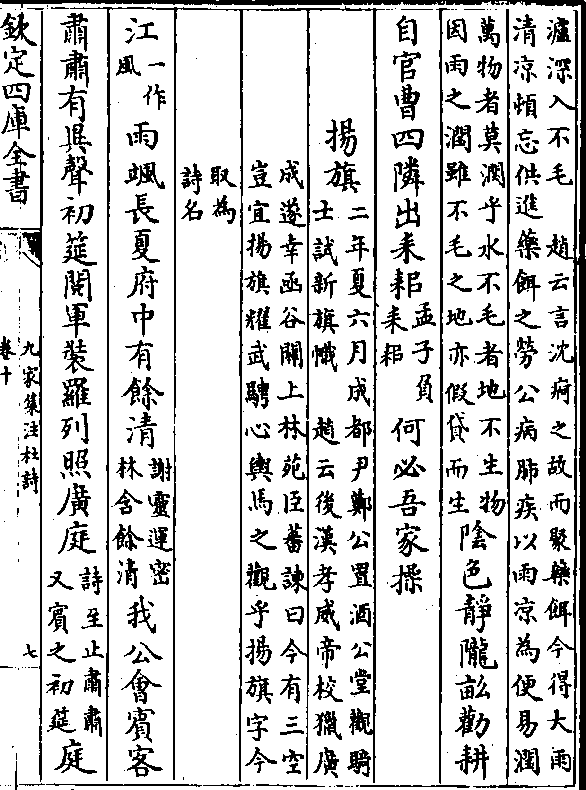 瀘深入不毛　趙云言沈痾之故而聚藥餌今得大雨
清凉頓忘供進藥餌之勞公病肺疾以雨凉為便易潤
萬物者莫潤乎水不毛者地不生物
因雨之潤雖不毛之地亦假貸而生
陰色静隴畝勸耕
自官曹四隣出耒耜
孟子負
耒耜
何必吾家操
揚旗
二年夏六月成都尹鄭公置酒公堂觀騎
士試新旗幟　趙云後漢孝威帝校獵廣
成遂幸函谷關上林苑臣蕃諫曰今有三空
豈宜揚旗耀武騁心輿馬之觀乎揚旗字今
取為
詩名
江
一作
風
雨颯長夏府中有餘清
謝靈運密
林含餘清
我公會賓客
肅肅有異聲初筵閱軍裝羅列照廣庭
詩至止肅肅
又賓之初筵
庭
欽定四庫全書
九家集注杜詩
卷十
七